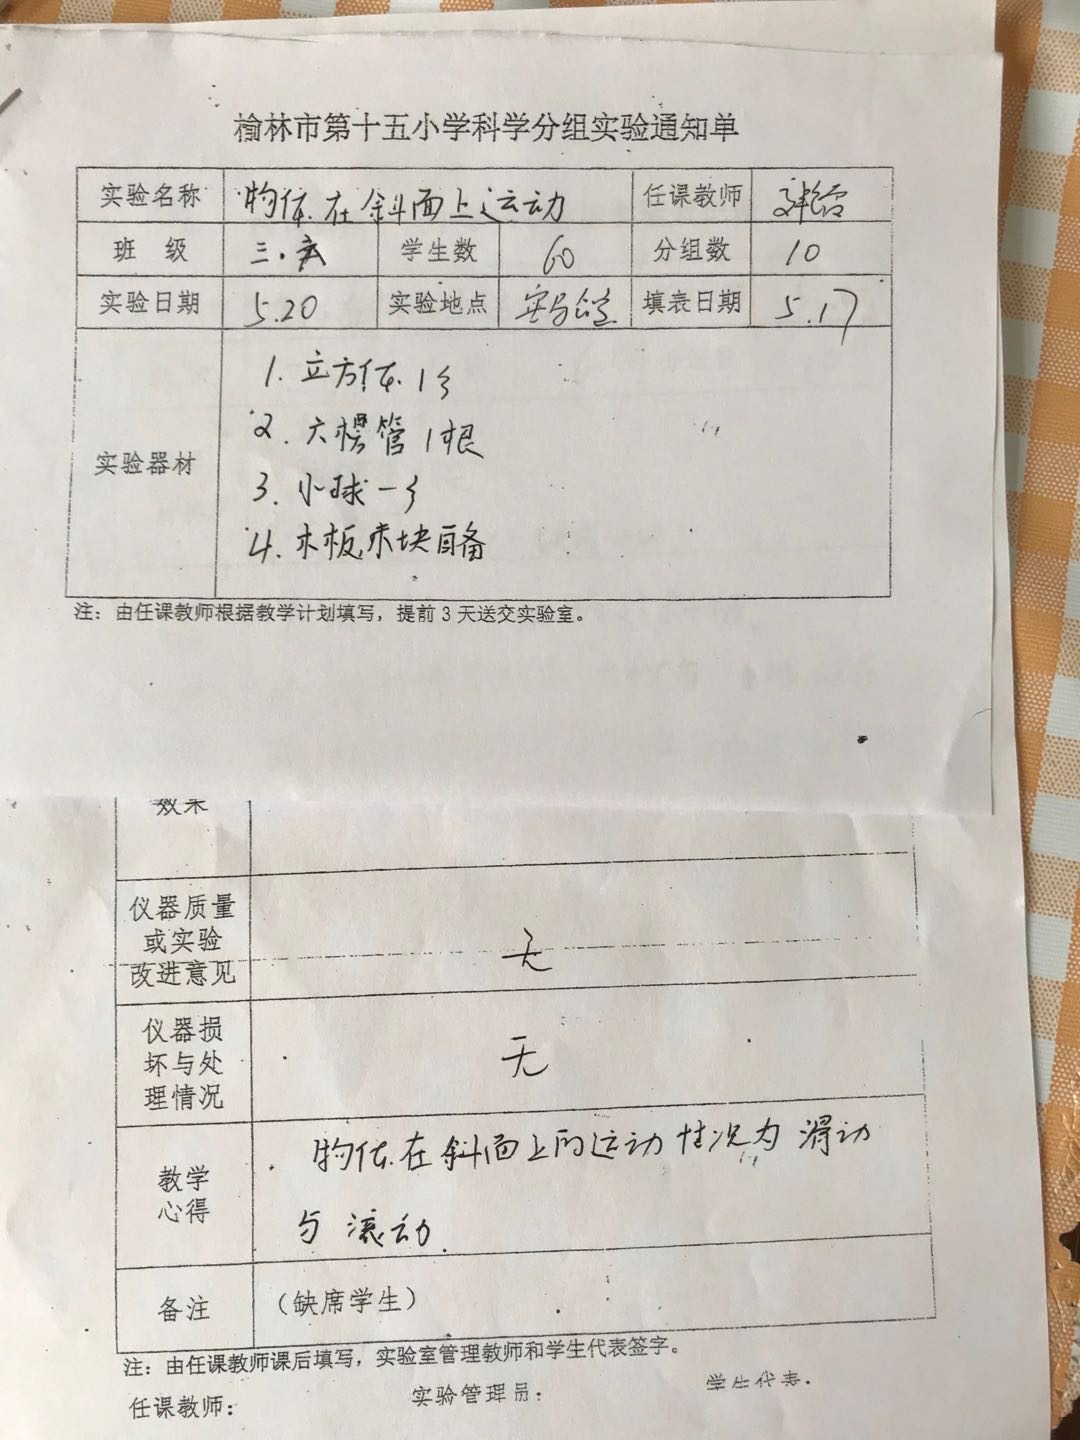 榆林市第十五小学科学分组实验通知单
实验名称 物体在斜面上运动 任课教师
班 级 三.六 学生数 60 分组数 10
实验日期 5.20 实验地点 实验室 填表日期 5.17
实验器材
1. 立方体 1个
2. 六棱管 1根
3. 小球一个
4. 木板木块自备
注：由任课教师根据教学计划填写，提前3天送交实验室。
效果
仪器质量
或实验
改进意见
无
仪器损
坏与处
理情况
无
教学
心得
物体在斜面上的运动情况为滑动
与滚动.
备注 （缺席学生）
注：由任课教师课后填写，实验室管理教师和学生代表签字。
任课教师： 实验管理员： 学生代表：